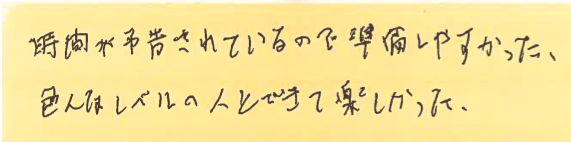 時間が予告されているので準備しやすかった、
色んなレベルの人とできて楽しかった、